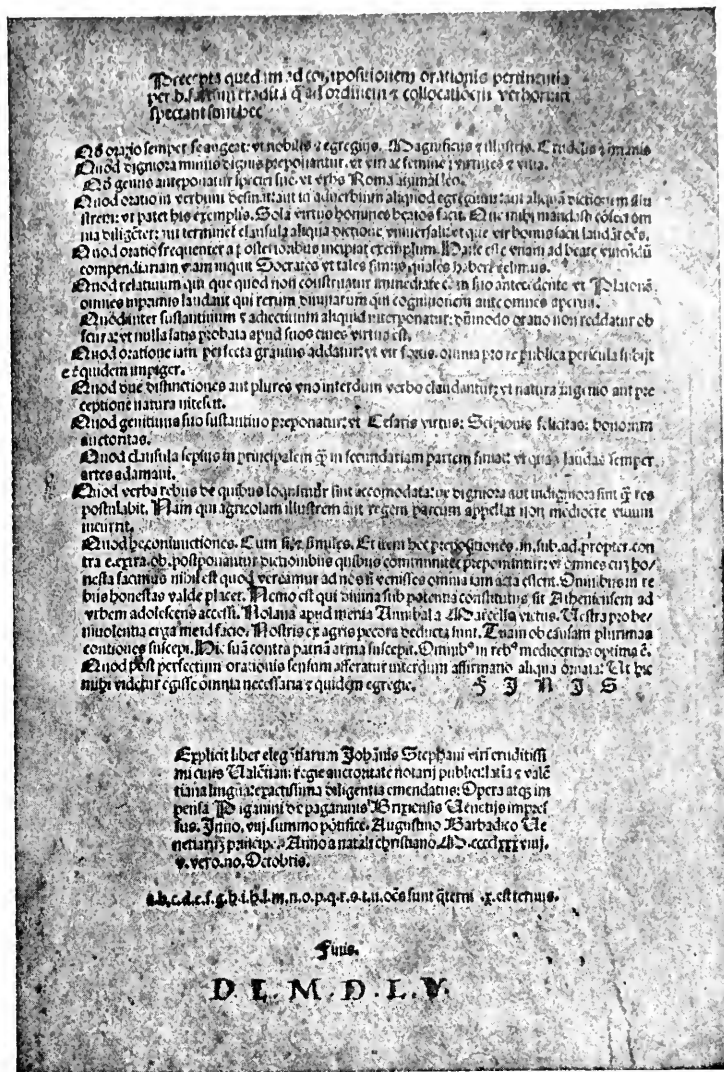 Precepta quedam ad compositionem orationis pertinentia
per b. tradita q̃ ad ordinem ⁊ collocationem verborum
spectant sunt hec
Qđ oratio semper se augeat: vt nobilis ⁊ egregius. Magnificus ⁊ illustris. Crudelis ⁊ imanis
Quod digniora minus dignis preponantur. vt viri ac femine; virtutes ⁊ vitia.
Qđ genus anteponatur speciei sue. vt vrbs Roma animal leo.
Quod oratio in verbum desinat: aut in aduerbium aliquod egregium: aut aliquã dictionem illu
strem: vt patet his exemplis. Sola virtus homines beatos facit. Que mihi mandasti cõfeci om
nia diligẽter: aut terminet clausula aliqua dictione vniuersali: vt que vir bonus facit laudãt oẽs.
Quod oratio frequenter a posterioribus incipiat exemplum. Hanc esse viam ad beate viuendũ
compendiariam viam inquit Socrates vt tales simus quales haberi velimus.
Quod relatiuum qui que quod non construatur immediate cũ suo antecedente vt Platonẽ
omnes inprimis laudant qui rerum diuinarum cognitionem ante omnes aperuit.
Quod inter sustantiuum ⁊ adiectiuum aliquid interponatur: dũmodo oratio non reddatur ob
scura: vt nulla satis probata apud suos ciues virtus est.
Quod oratione iam perfecta grauius addatur: vt vir fortis. omnia pro re publica pericula subijt
et quidem impiger.
Quod due distinctiones aut plures vno interdum verbo claudantur: vt natura ingenio aut pre
ceptione natura nitescit.
Quod genitiuus suo sustantiuo preponatur: vt Cesaris virtus: Scipionis felicitas: bonorum
auctoritas.
Quod clausula sepius in principalem q̃ in secundariam partem finiat: vt quas laudas semper
artes adamaui.
Quod verba rebus de quibus loquimur sint accomodata: ne digniora aut indigniora sint q̃ res
postulabit. Nam qui agricolam illustrem aut regem parcum appellat non mediocre vitium
incurrit.
Quod he coniunctiones. Cum si, ⁊ similes. Et item hee prepositiones. in. sub. ad. propter. con
tra e. extra. ob. postponantur dictionibus quibus communiter preponuntur: vt omnes cuʒ ho/
nesta facimus nihil est quod vereamur ad nos si venisses omnia iam acta essent. Omnibus in re
bus honestas valde placet. Nemo est qui diuina sub potentia constitutus sit Atheniensem ad
vrbem adolescens accessi. Nolana apud menia Annibal a Marcello victus. Uestra pro be/
niuolentia erga me id facio. Nostris ex agris pecora deducta sunt. Tuam ob causam plurimas
contiones suscepi. Hic suã contra patriã arma suscepit. Omnibꝰ in rebꝰ mediocritas optima ẽ.
Quod post perfectum orationis sensum afferatur interdum affirmatio aliqua ornata: Ut hic
mihi videtur egisse omnia necessaria ⁊ quidem egregie. F I N I S
Explicit liber elegãtiarum Johãnis Stephani viri eruditissi
mi ciuis Ualẽtiani: regie auctoritate notarij publici: latia ⁊ valẽ
tiana lingua: exactissima diligentia emendatus: Opera atqʒ im
pensa Paganini de paganinis Brixiensis Uenetijs impres
sus. Inno. viij. summo põtifice. Augustino Barbadico Ue
netiarũʒ principe. Anno a natali christiano. M. cccclxxxviiij.
v. vero. no. Octobris.
a.b.c.d.e.f.g.h.i.k.l.m.n.o.p.q.r.s.t.u. oẽs sunt q̃terni .x. est ternus.
Finis.
D. L. M. D. L. V.